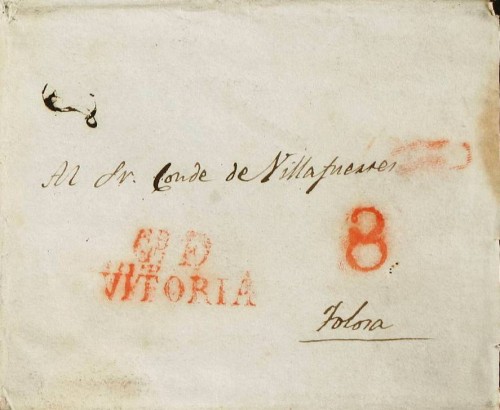 Al Sr. Conde de Villafuertes
8
VITORIA
Tolosa